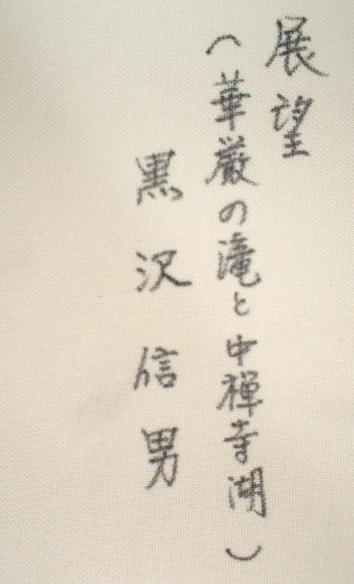 展望
（華厳の滝と中禅寺湖）
黒沢信男